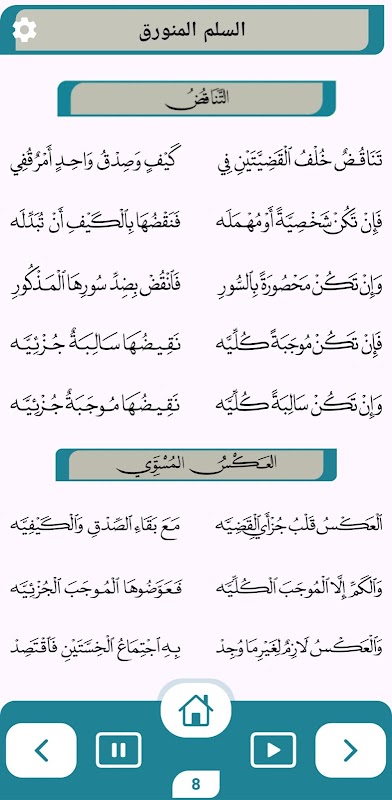 السلم المنورق
التَّنَاقُضُ
تَنَاقُضٌ خُلْفُ الْقَضِيَّتَيْنِ فِي كَيْفٍ وَصِدْقُ وَاحِدٍ أَمْرٌ قُفِي
فَإِنْ تَكُنْ شَخْصِيَّةً أَوْ مُهْمَلَه فَنَقْضُهَا بِالْكَيْفِ أَنْ تُبَدِّلَه
وَإِنْ تَكُنْ مَحْصُورَةً بِالسُّورِ فَانْقُضْ بِضِدِّ سُورِهَا الْمَذْكُورِ
فَإِنْ تَكُنْ مُوجَبَةً كُلِّيَّه نَقِيضُهَا سَالِبَةٌ جُزْئِيَّه
وَإِنْ تَكُنْ سَالِبَةً كُلِّيَّه نَقِيضُهَا مُوجَبَةٌ جُزْئِيَّه
العَكْسُ المُسْتَوِي
الْعَكْسُ قَلْبُ جُزْأَيِ الْقَضِيَّه مَعَ بَقَاءِ الصِّدْقِ وَالْكَيْفِيَّه
وَالْكَمِّ إِلَّا الْمُوجَبَ الْكُلِّيَّه فَعَوَّضُوهَا الْمُوجَبَ الْجُزْئِيَّه
وَالْعَكْسُ لَازِمٌ لِغَيْرِ مَا وُجِدْ بِهِ اجْتِمَاعُ الْخِسَّتَيْنِ فَاقْتَصِدْ
8